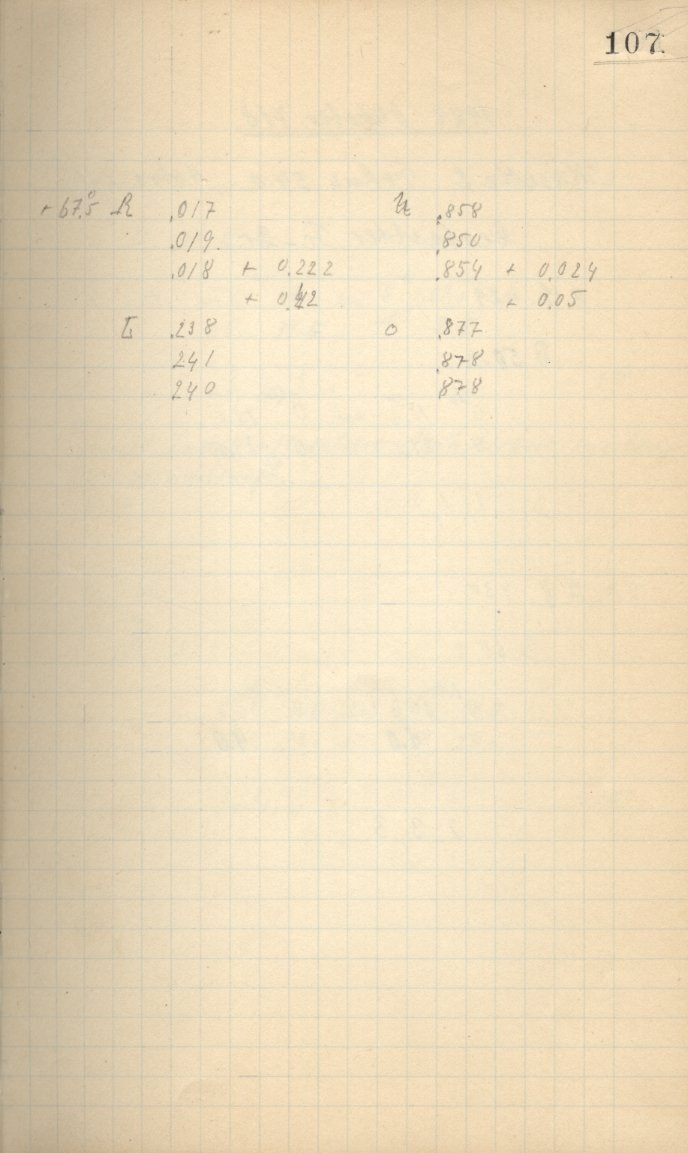 107
+67.5° R .017 U .858
.019 .850
.018 + 0.222 .854 + 0.024
+ 0.42 - 0.05
L .238 O .877
241 .878
240 878